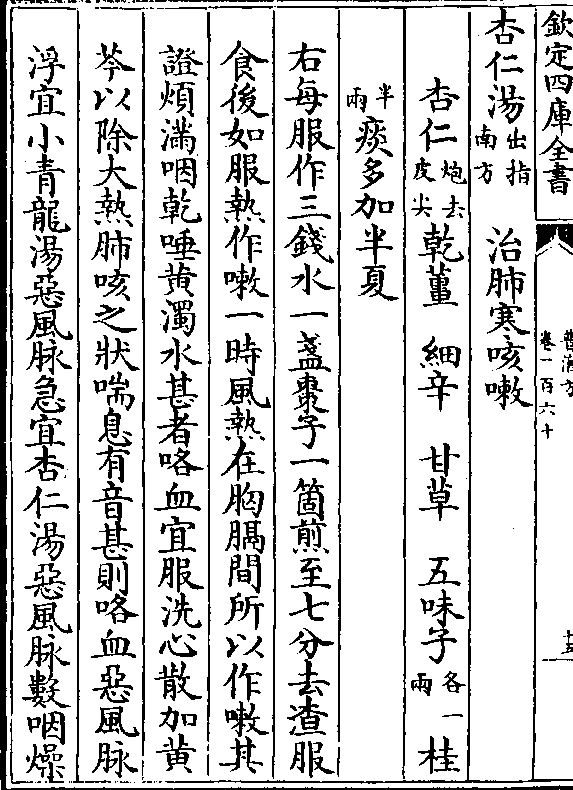 欽定四庫全書
普濟方
卷一百六十
杏仁湯出指南方 治肺寒咳嗽
杏仁炮去皮尖 乾薑 細辛 甘草 五味子各一兩 桂
半兩 痰多加半夏
右每服作三錢水一盞棗子一箇煎至七分去渣服
食後如服熱作嗽一時風熱在胸膈間所以作嗽其
證煩滿咽乾唾黄濁水甚者咯血宜服洗心散加黄
芩以除大熱肺咳之狀喘息有音甚則咯血惡風脉
浮宜小青龍湯惡風脉急宜杏仁湯惡風脉數咽燥